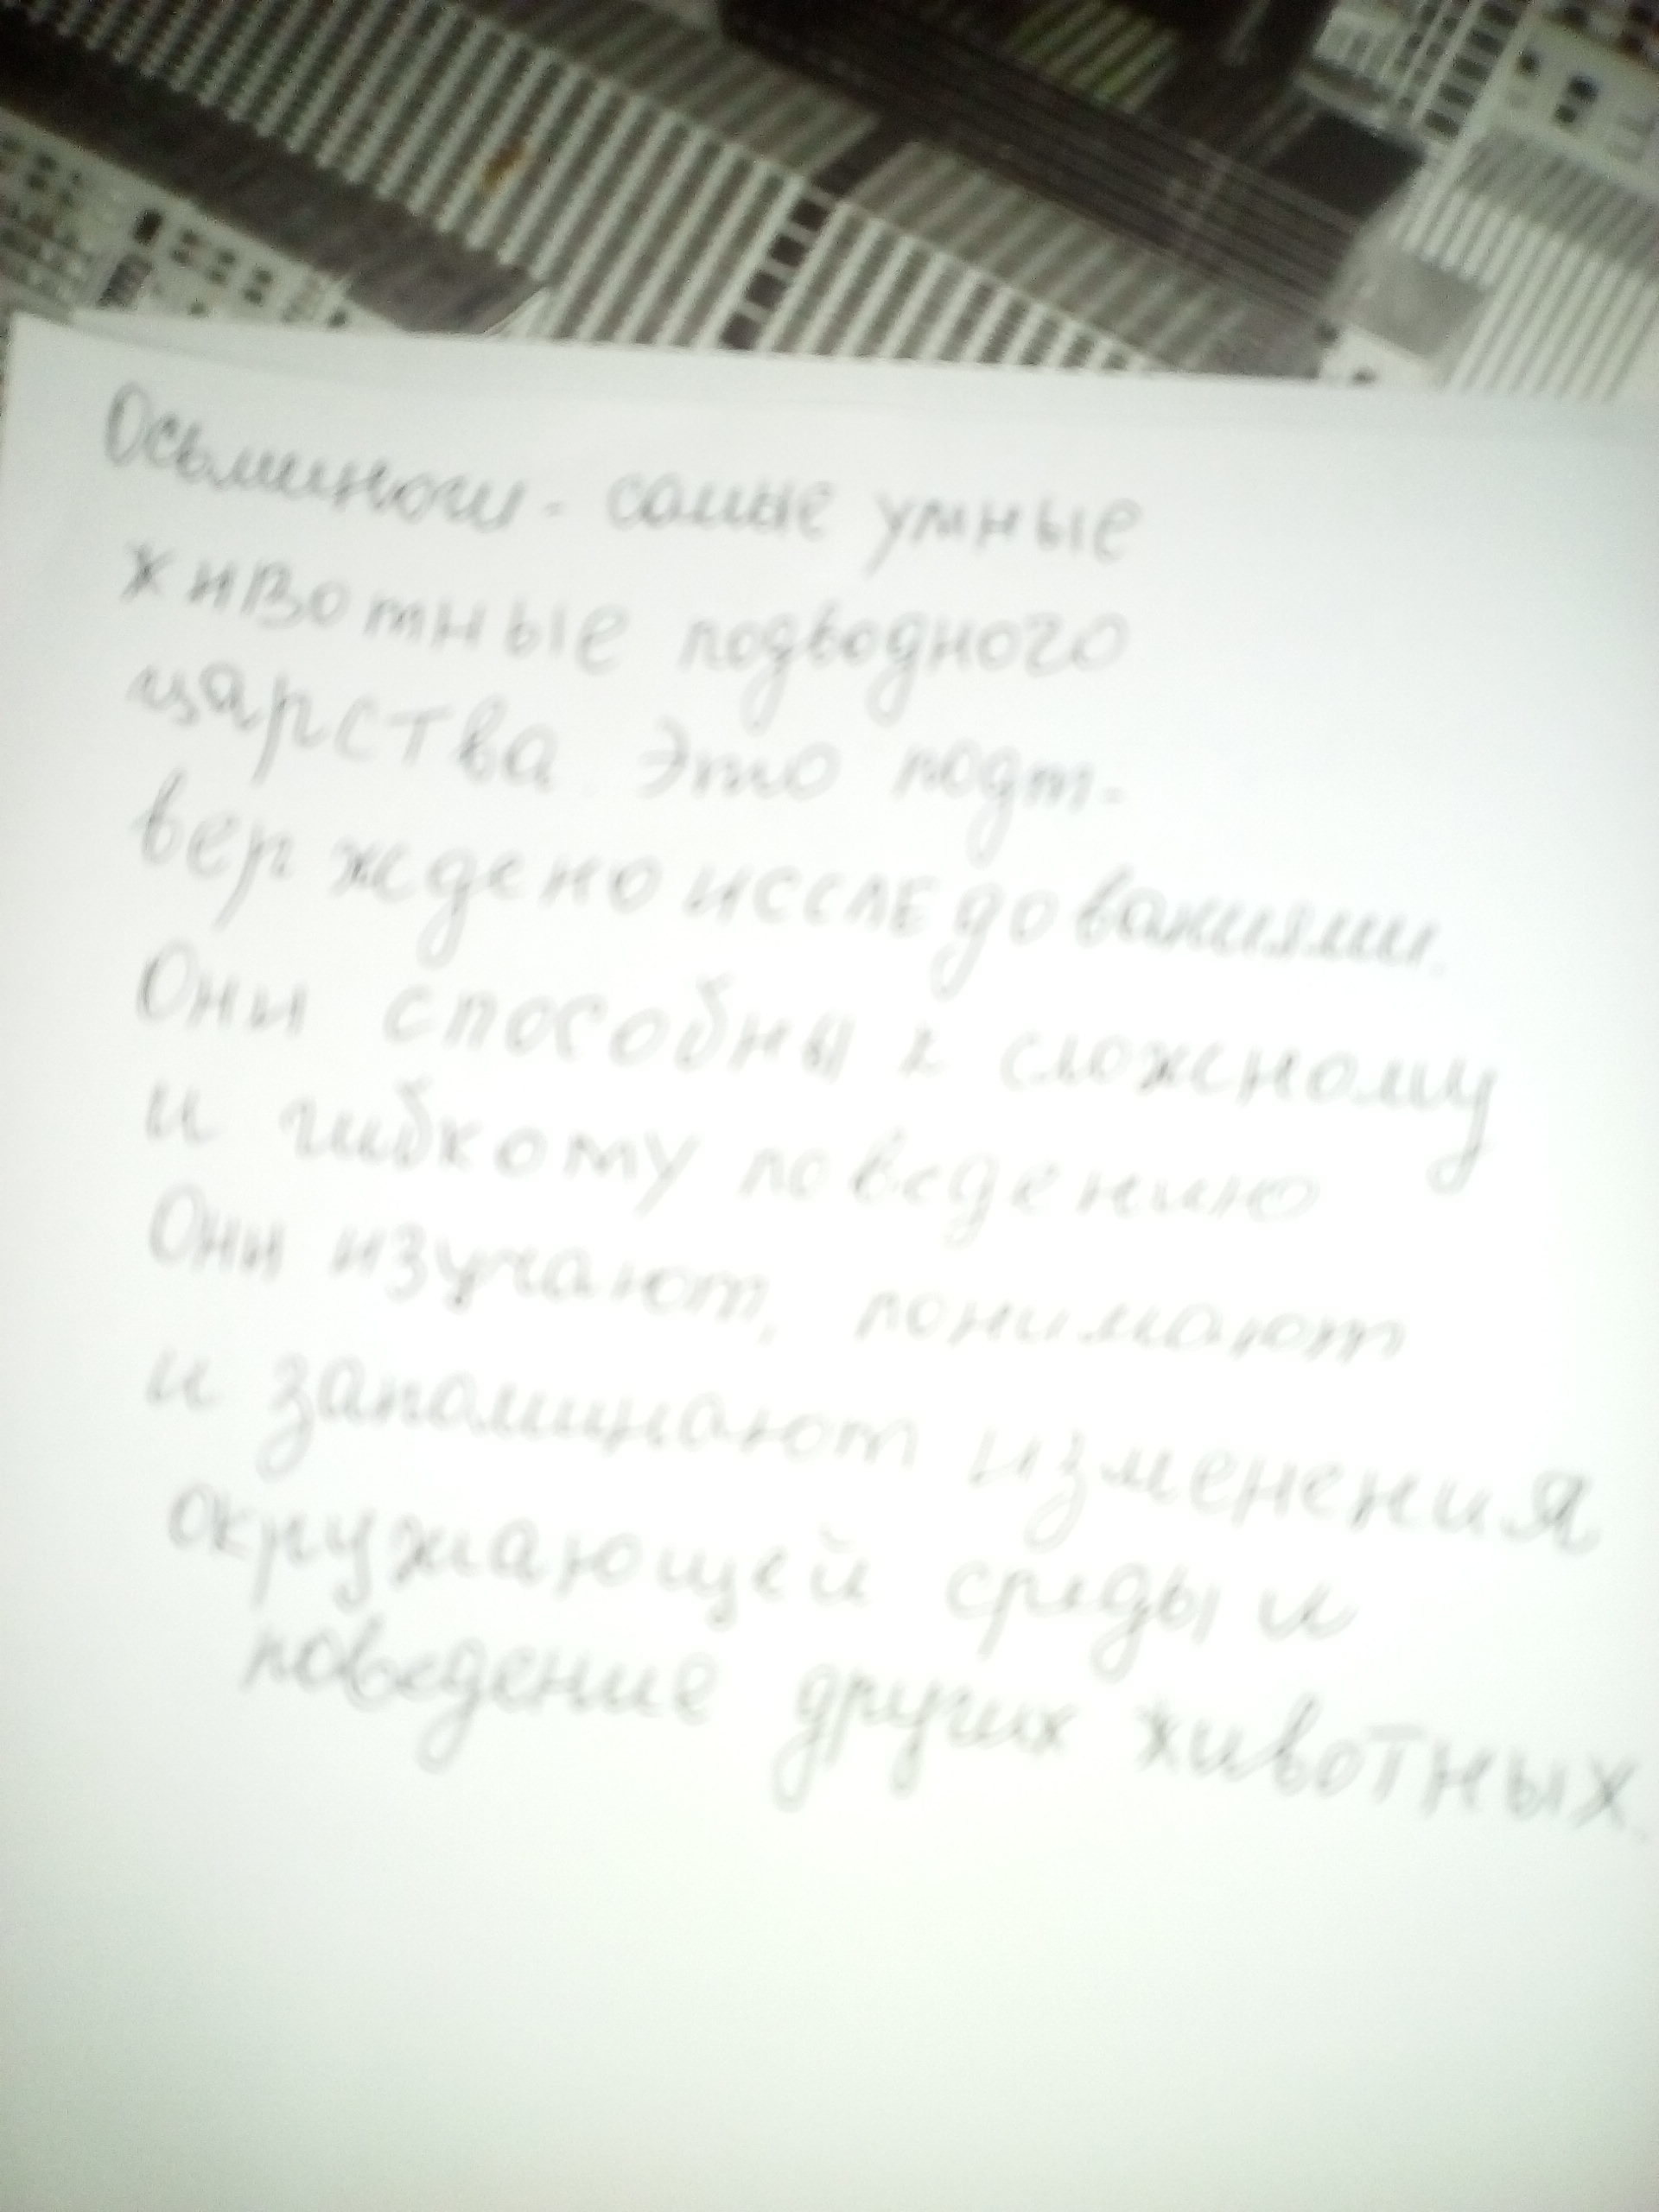 Осьминоги - самые умные
животные подводного
царства. Это подт-
верждено исследованиями.
Они способны к сложному
и гибкому поведению
Они изучают, понимают
и запоминают изменения
окружающей среды и
поведение других животных.